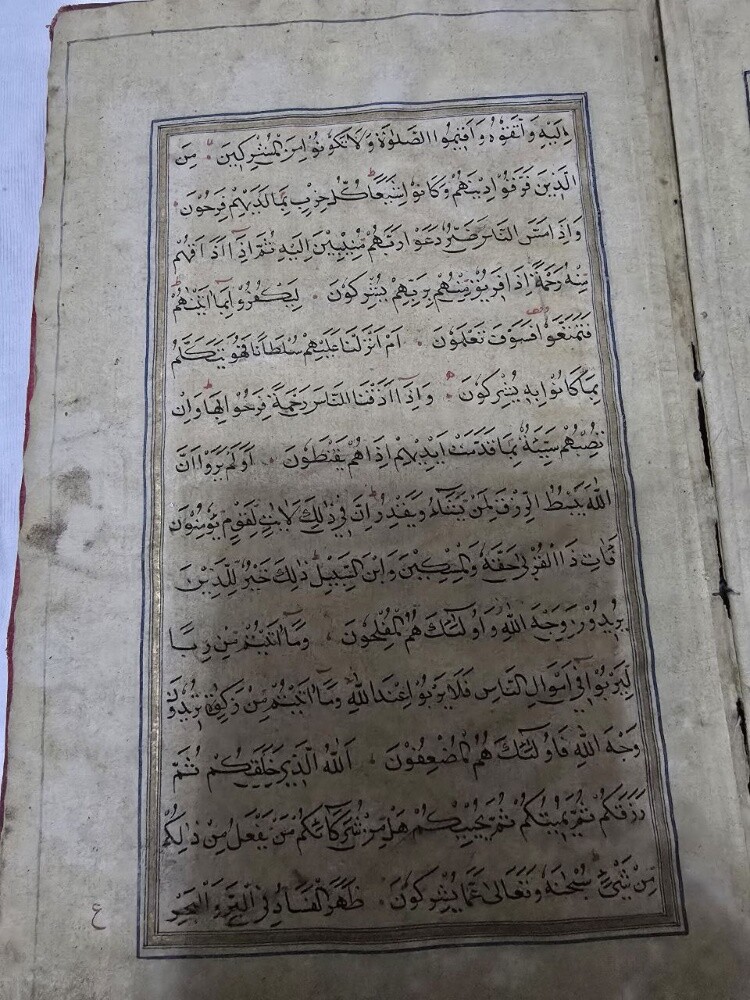 اِلَيْهِ وَاتَّقُوهُ وَاَقِيمُوا الصَّلٰوةَ وَلَا تَكُونُوا مِنَ الْمُشْرِكِينَ مِنَ
الَّذِينَ فَرَّقُوا دِينَهُمْ وَكَانُوا شِيَعًا كُلُّ حِزْبٍ بِمَا لَدَيْهِمْ فَرِحُونَ
وَاِذَا مَسَّ النَّاسَ ضُرٌّ دَعَوْا رَبَّهُمْ مُنِيبِينَ اِلَيْهِ ثُمَّ اِذَا اَذَاقَهُمْ
مِنْهُ رَحْمَةً اِذَا فَرِيقٌ مِنْهُمْ بِرَبِّهِمْ يُشْرِكُونَ لِيَكْفُرُوا بِمَا اٰتَيْنٰهُمْ
فَتَمَتَّعُوا فَسَوْفَ تَعْلَمُونَ اَمْ اَنْزَلْنَا عَلَيْهِمْ سُلْطَانًا فَهُوَ يَتَكَلَّمُ
بِمَا كَانُوا بِهِ يُشْرِكُونَ وَاِذَا اَذَقْنَا النَّاسَ رَحْمَةً فَرِحُوا بِهَا وَاِنْ
تُصِبْهُمْ سَيِّئَةٌ بِمَا قَدَّمَتْ اَيْدِيهِمْ اِذَا هُمْ يَقْنَطُونَ اَوَلَمْ يَرَوْا اَنَّ
اللّٰهَ يَبْسُطُ الرِّزْقَ لِمَنْ يَشَاءُ وَيَقْدِرُ اِنَّ فِي ذٰلِكَ لَاٰيٰتٍ لِقَوْمٍ يُؤْمِنُونَ
فَاٰتِ ذَا الْقُرْبٰى حَقَّهُ وَالْمِسْكِينَ وَابْنَ السَّبِيلِ ذٰلِكَ خَيْرٌ لِلَّذِينَ
يُرِيدُونَ وَجْهَ اللّٰهِ وَاُولٰئِكَ هُمُ الْمُفْلِحُونَ وَمَا اٰتَيْتُمْ مِنْ رِبًا
لِيَرْبُوَا فِي اَمْوَالِ النَّاسِ فَلَا يَرْبُوا عِنْدَ اللّٰهِ وَمَا اٰتَيْتُمْ مِنْ زَكٰوةٍ تُرِيدُونَ
وَجْهَ اللّٰهِ فَاُولٰئِكَ هُمُ الْمُضْعِفُونَ اَللّٰهُ الَّذِي خَلَقَكُمْ ثُمَّ
رَزَقَكُمْ ثُمَّ يُمِيتُكُمْ ثُمَّ يُحْيِيكُمْ هَلْ مِنْ شُرَكَائِكُمْ مَنْ يَفْعَلُ مِنْ ذٰلِكُمْ
مِنْ شَيْءٍ سُبْحٰنَهُ وَتَعَالٰى عَمَّا يُشْرِكُونَ ظَهَرَ الْفَسَادُ فِي الْبَرِّ وَالْبَحْرِ
ع